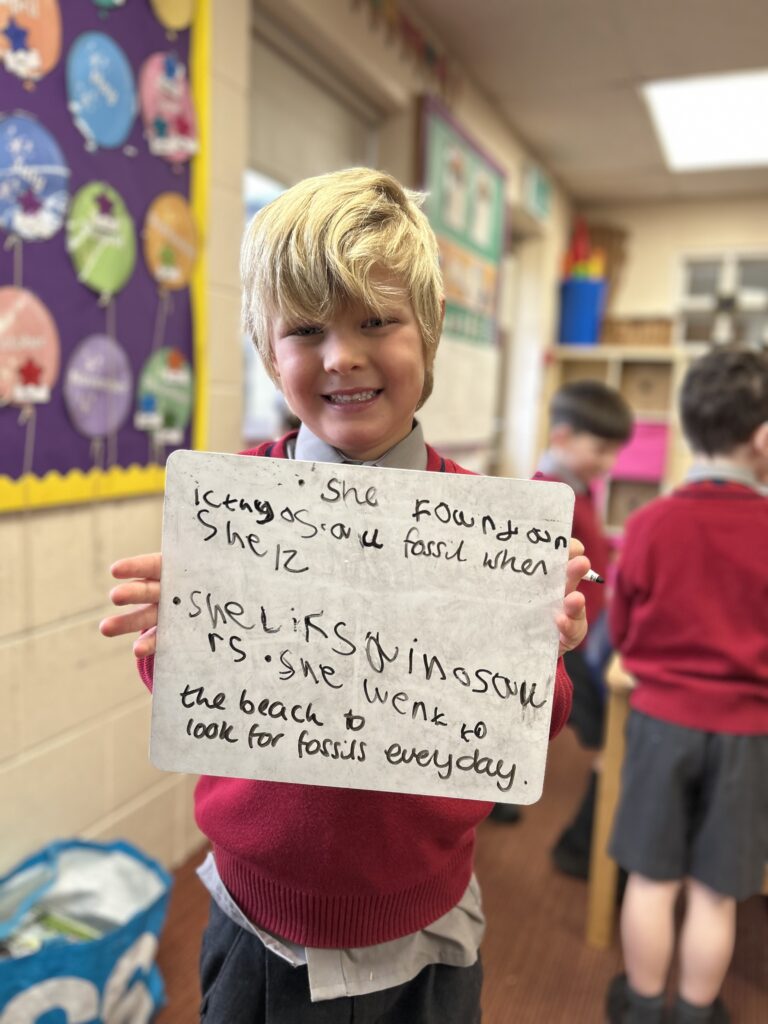 • She Fowndown
icthyosauu fossil when
she 12
• She Liks dinosauu
rs • she wenk to
the beach to
look for fossils everyday.